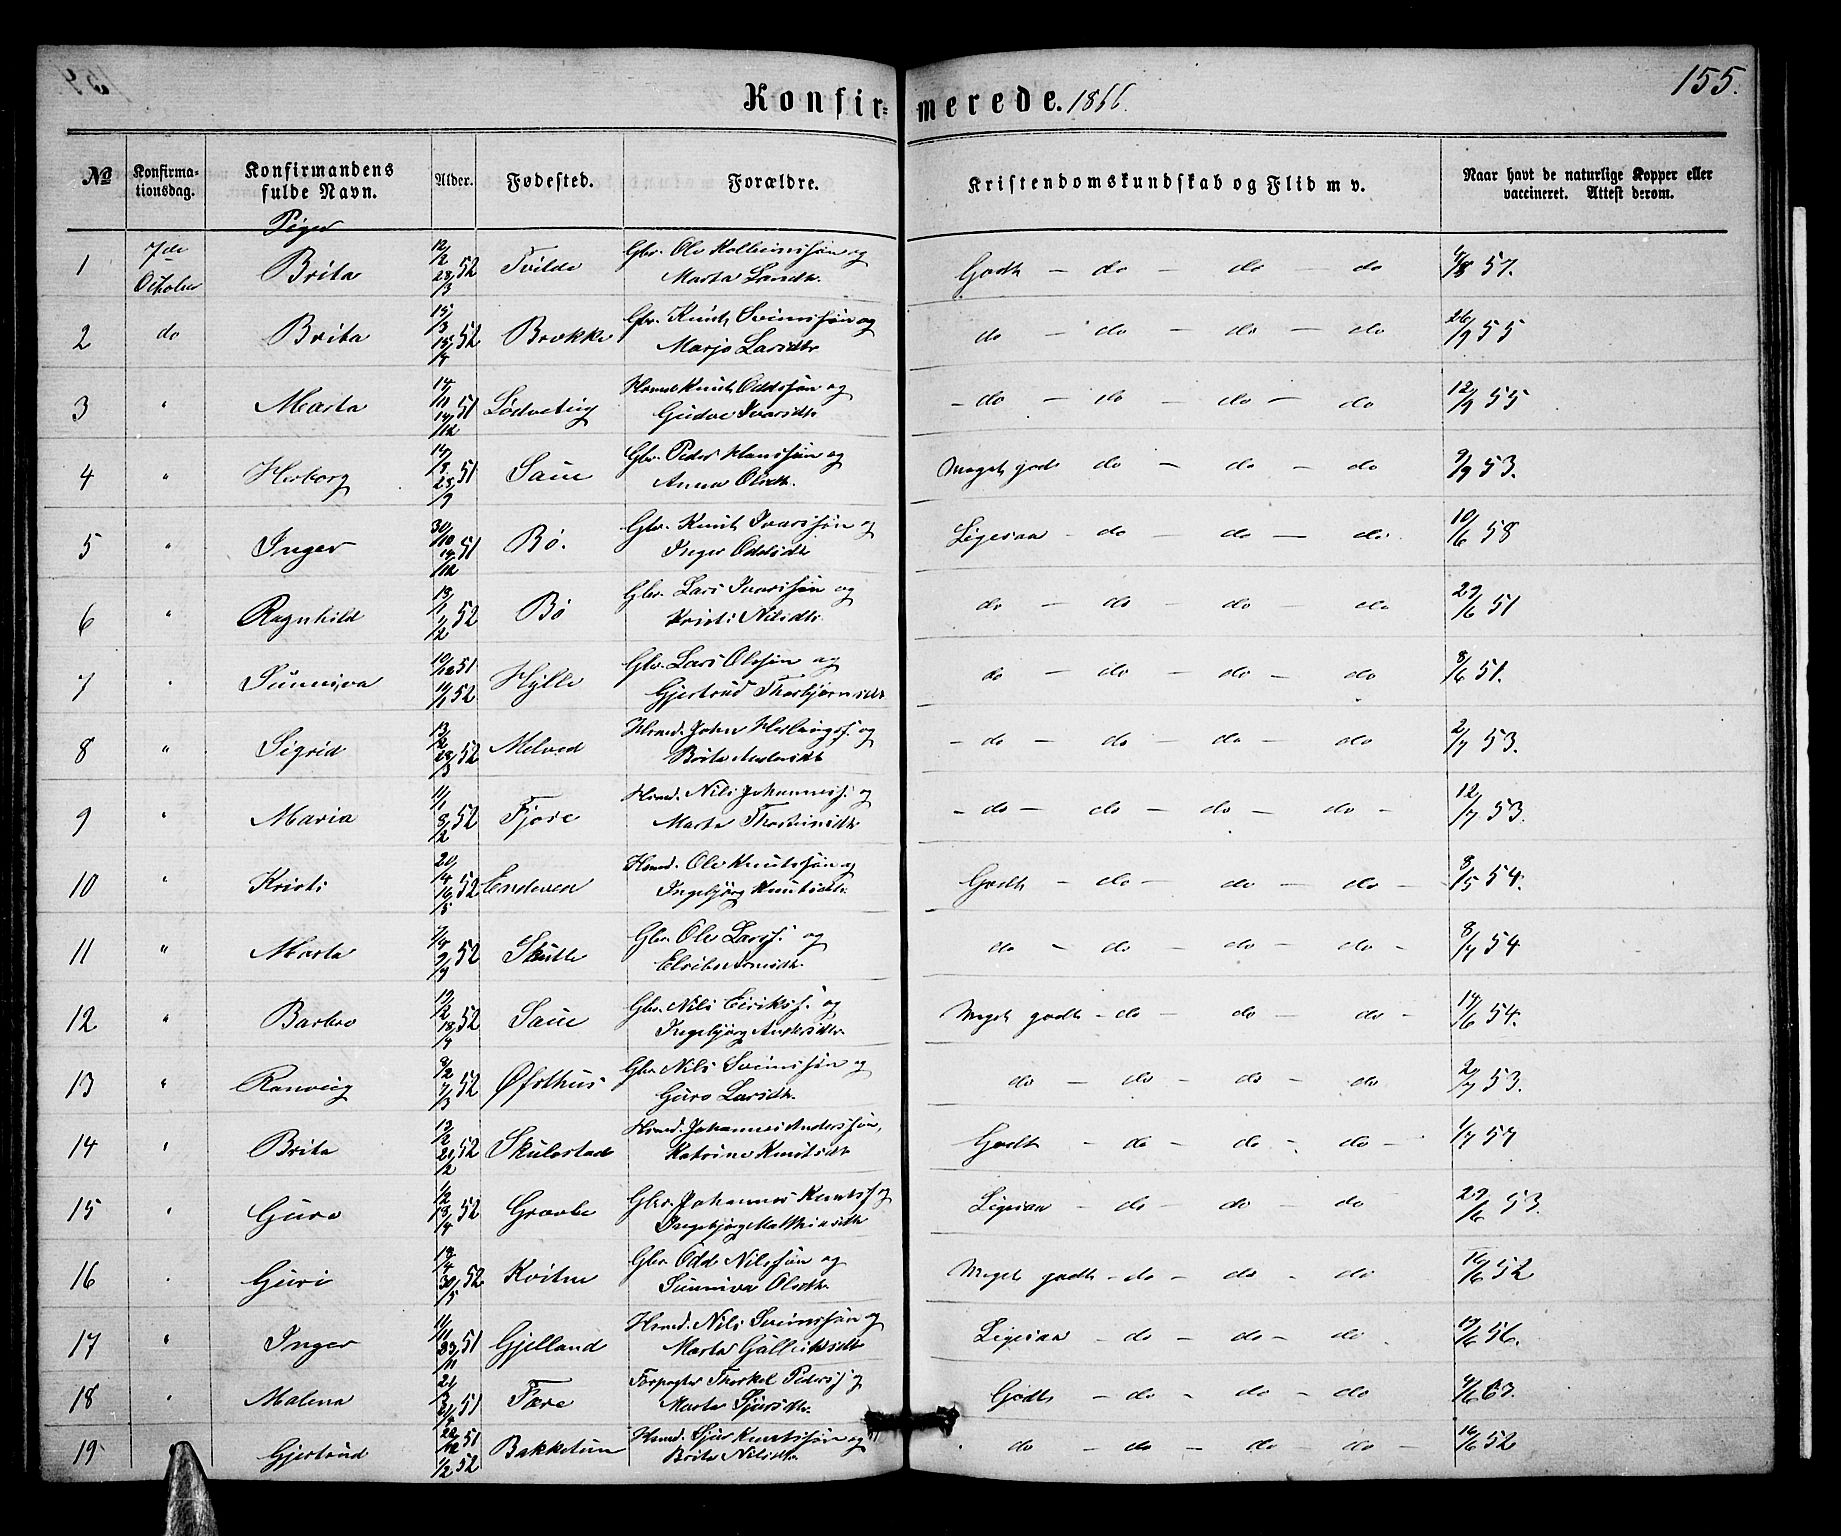 155.
Konfirmerede. 1866.
No
Konfirmationsdag.
Konfirmandens fulde Navn.
Alder.
Fødested.
Forældre.
Kristendomskundskab og Flid m v.
Naar havt de naturlige Kopper eller vaccineret. Attest derom.
Piger
1 7de October Brita 12/2 28/3 52 Tvilde Gbr. Ole og Marta Larsdtr. Godt - do - do - do 57.
2 do Brita 52 Brekke Gbr. Knut Sveinssøn og Marjo Larsdtr do - do - do - do 26/9 55
3 " Marta 14/11 14/12 51 Lødveteig Huusmd Knut Oddssøn og Gudve Ivarsdtr - do - do - do - do 12/9 55
4 " Herborg 51 Saue Gbr. Peder Hanssøn og Anna Olsdtr. Meget godt do - do - do 9/9 53.
5 " Inger 30/10 14/12 51 Bø. Gbr. Knut Ivarssøn og Inger Oddsdtr Ligesaa - do - do - do. 10/6 58
6 " Ragnhild 52 Bø Gbr. Lars Ivarssøn og Kristi Nilsdtr. do - do - do - do 29/6 51
7 " Sunniva 51 52 Hylle Gbr. Lars Olssøn og Gjertrud Thorbjørnsdtr do - do - do - do 8/6 51.
8 " Sigrid 13/2 28/3 52 Melved Hsmd. John og Brita Andersdtr - do - do - do - do 2/7 53.
9 " Maria 11/1 8/2 52 Fjøre Hsmd. Nils Johanness. og Marta Thorsteinsdtr - do - do - do - do - 12/7 53.
10 " Kristi 20/4 16/5 52 Endeven Hsmd. Ole Knutssøn og Ingebjørg Knutsdtr. Godt - do - do - do - 8/5 54.
11 " Marta 52 Skutle Gbr. Ole Larss. og do - do - do - do - 8/7 54
12 " Barbro 52 Saue Gbr. Nils Eirikss. og Ingebjørg Andersdtr. Meget godt - do - do - do - 14/6 54.
13 " Ranveig 52 Øfsthus Gbr. Nils Sveinssøn og Guro Larsdtr. do - do - do - do 2/7 53.
14 " Brita 52 Skulestad Hsmd. Johannes Anderssøn, Katrina Knutsdtr Godt - do - do - do -
15 " Guro 52 Graue Gbr. Johannes Knutss og Ingebjørg Mathiasdtr Ligesaa - do - do - do 29/6 53.
16 " Guri 30/5 52 Kvitne Gbr. Odd Nilssøn og Sunniva Olsdtr. Meget godt - do - do - do 16/6 52
17 " Inger 11/11 23/11 51 Gjelland Hsmd. Nils Sveinssøn og Marta Gulleiksdtr Ligesaa - do - do - do. 56.
18 " Malena 51 Fære Forpagter Thorkel Pederss og Marta Sjursdtr. Godt - do - do - do
19 Gjertrud 51 1/2 52 Bakketun Hsmd. Sjur Knutssøn og Brita Nilsdtr. do - do - do - do - 16/6 52